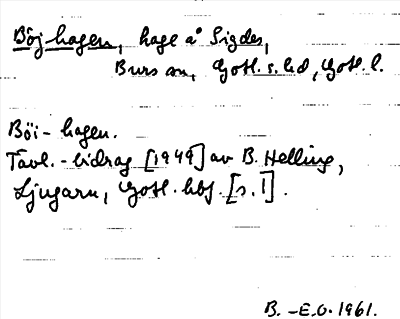 Böj-hagen, hage å Sigdes,
Burs sn, Gotl. s. hd, Gotl. l.
Böi-hagen.
Tävl.-bidrag [1949] av B. Helling,
Ljugarn, Gotl. hbf. [s. 1].
B. -E.O. 1961.